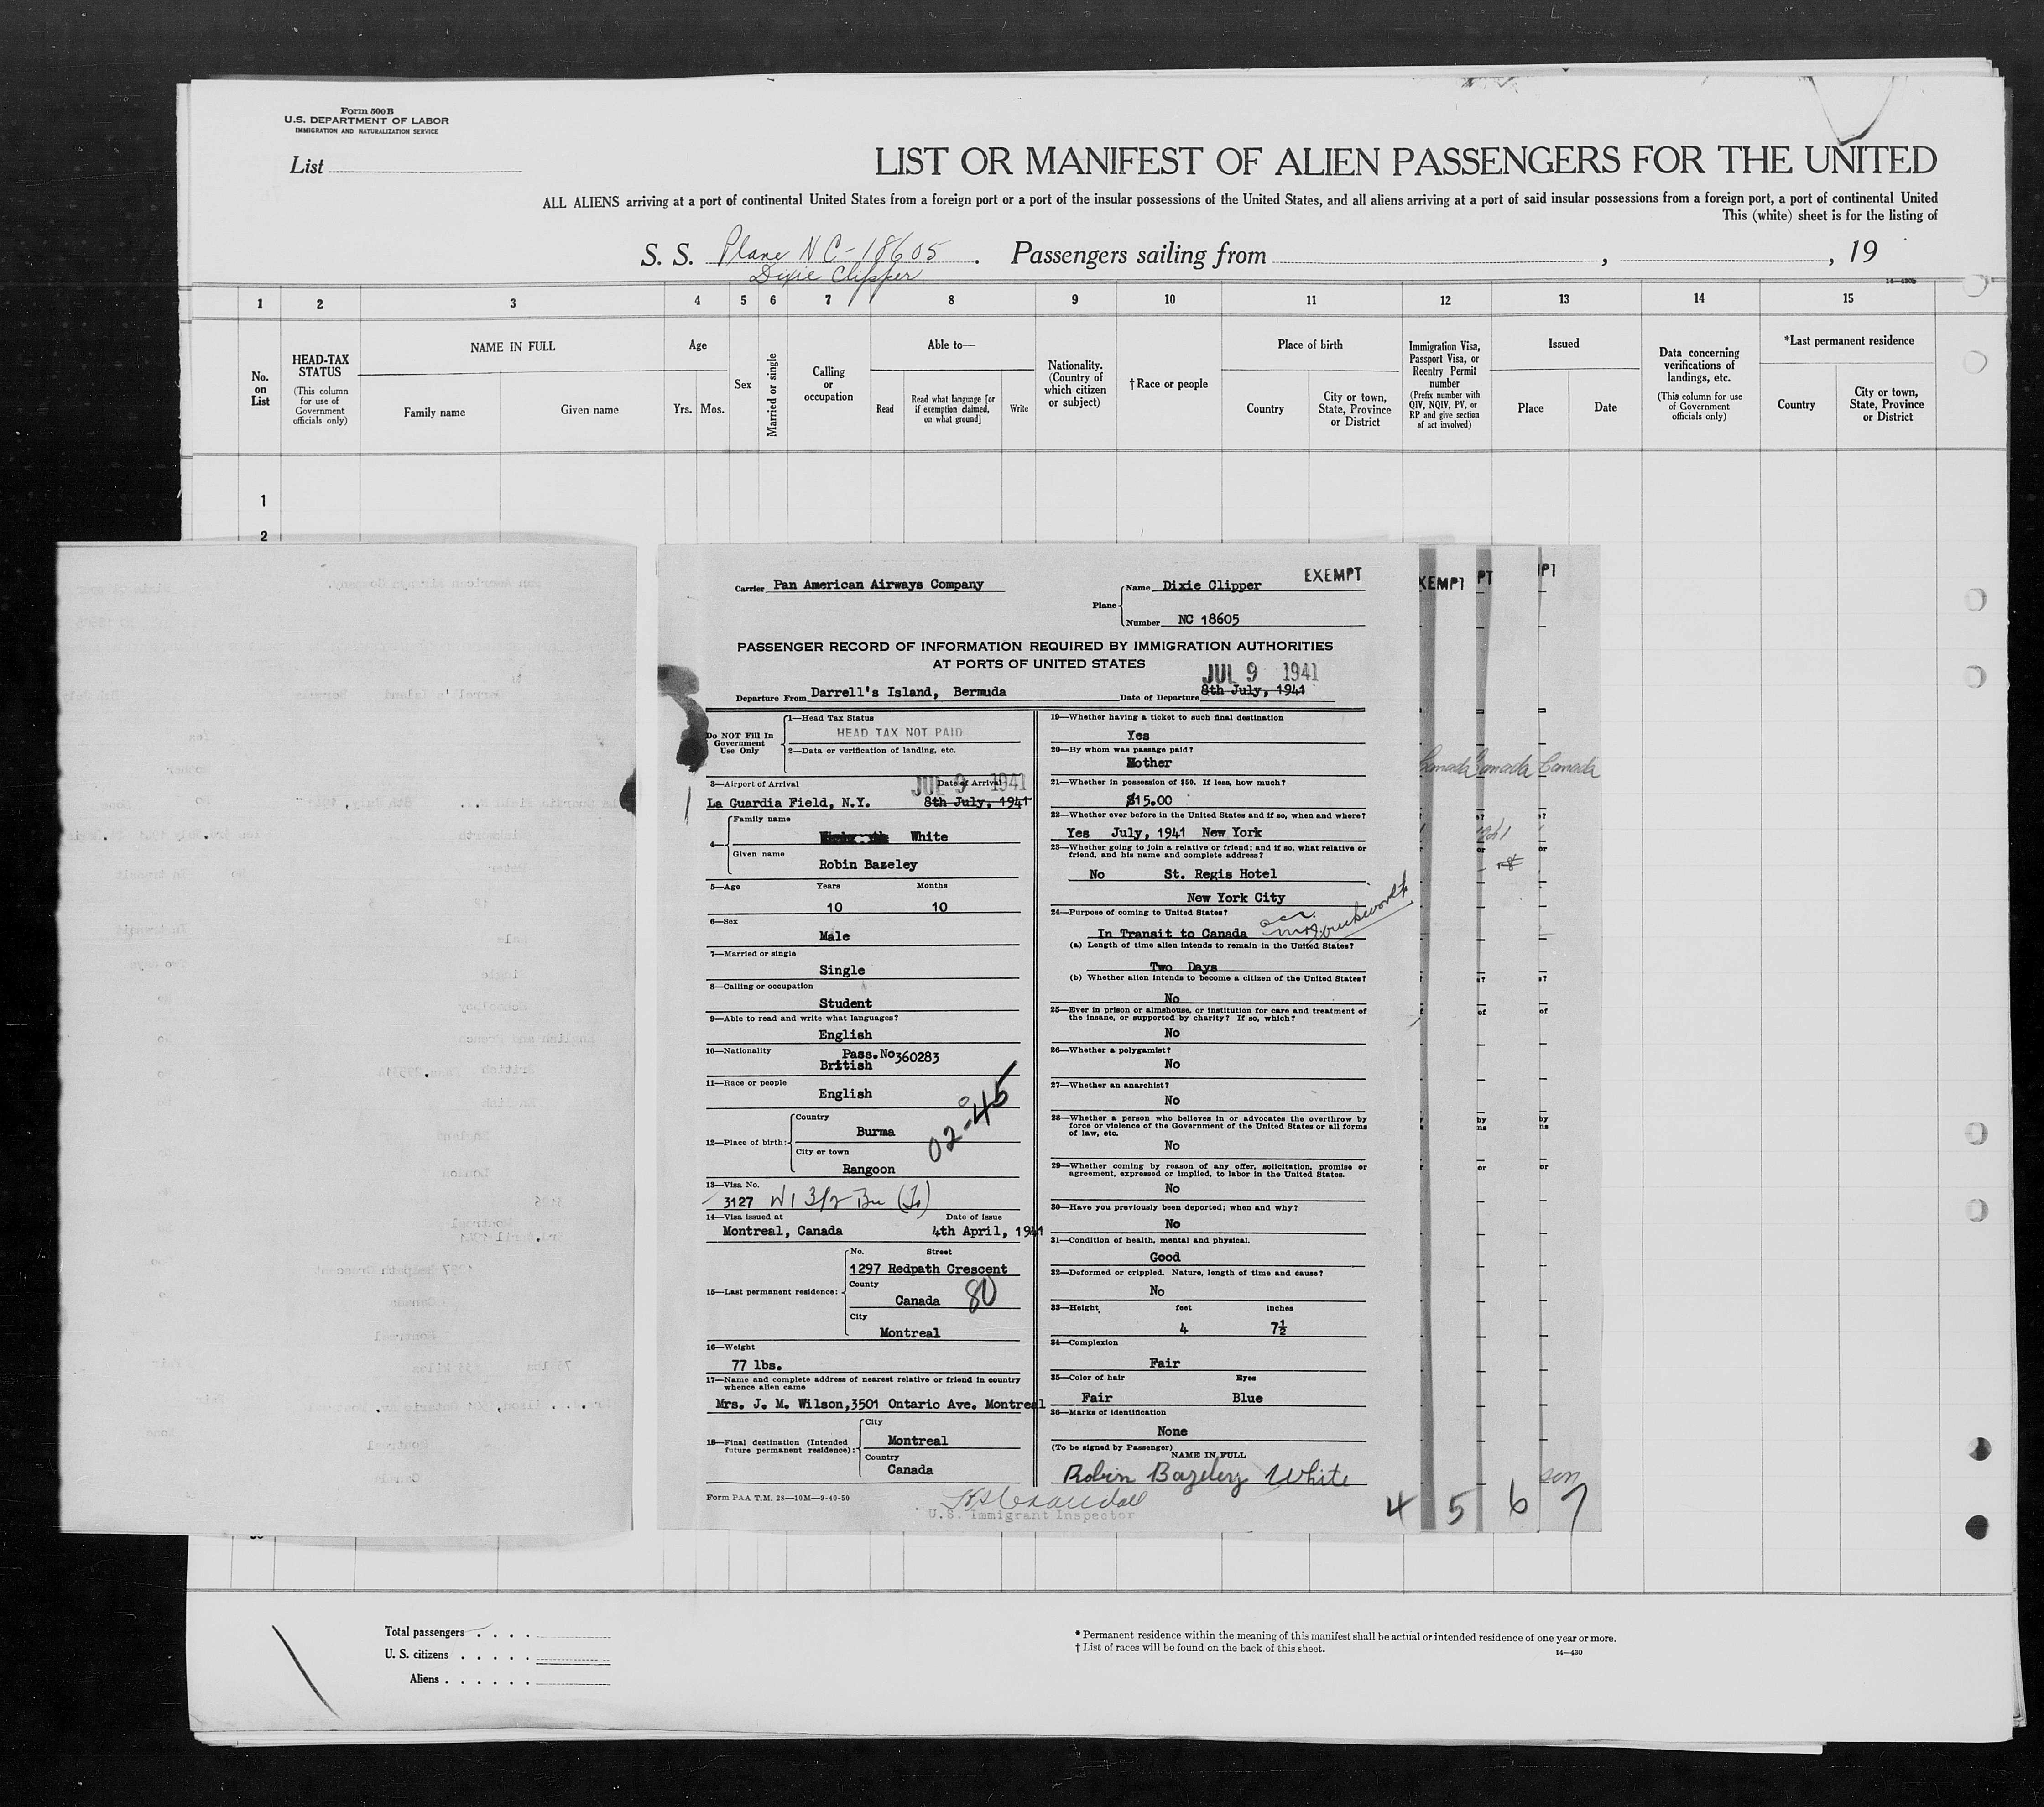 Form 500 B
U.S. DEPARTMENT OF LABOR
IMMIGRATION AND NATURALIZATION SERVICE
List
LIST OR MANIFEST OF ALIEN PASSENGERS FOR THE UNITED
ALL ALIENS arriving at a port of continental United States from a foreign port or a port of the insular possessions of the United States, and all aliens arriving at a port of said insular possessions from a foreign port, a port of continental United
This (white) sheet is for the listing of
S. S. Plane NC-18605 . Passengers sailing from , , 19
Dixie Clipper
14—430b
1 2 3 4 5 6 7 8 9 10 11 12 13 14 15
No. on List
HEAD-TAX STATUS
(This column for use of Government officials only)
NAME IN FULL
Family name Given name
Age
Yrs. Mos.
Sex
Married or single
Calling or occupation
Able to—
Read
Read what language [or if exemption claimed, on what ground]
Write
Nationality. (Country of which citizen or subject)
† Race or people
Place of birth
Country
City or town, State, Province or District
Immigration Visa, Passport Visa, or Reentry Permit number
(Prefix number with QIV, NQIV, PV, or RP and give section of act involved)
Issued
Place Date
Data concerning verifications of landings, etc.
(This column for use of Government officials only)
*Last permanent residence
Country
City or town, State, Province or District
1
2
Carrier Pan American Airways Company
EXEMPT
Plane
Name Dixie Clipper
Number NC 18605
PASSENGER RECORD OF INFORMATION REQUIRED BY IMMIGRATION AUTHORITIES
AT PORTS OF UNITED STATES
JUL 9 1941
Departure From Darrell's Island, Bermuda Date of Departure 8th July, 1941
Do NOT Fill In Government Use Only
1—Head Tax Status
HEAD TAX NOT PAID
2—Data or verification of landing, etc.
3—Airport of Arrival Date of Arrival
JUL 9 1941
La Guardia Field, N.Y. 8th July, 1941
4—
Family name
White
Given name
Robin Bazeley
5—Age Years Months
10 10
6—Sex
Male
7—Married or single
Single
8—Calling or occupation
Student
9—Able to read and write what languages?
English
10—Nationality Pass.No 360283
British
11—Race or people
English
12—Place of birth:
Country
Burma
City or town
Rangoon
02-45
13—Visa No.
3127
14—Visa issued at Date of issue
Montreal, Canada 4th April, 1941
15—Last permanent residence:
No. Street
1297 Redpath Crescent
County
Canada 80
City
Montreal
16—Weight
77 lbs.
17—Name and complete address of nearest relative or friend in country
whence alien came
Mrs. J. M. Wilson,3501 Ontario Ave. Montreal
18—Final destination (Intended
future permanent residence):
City
Montreal
Country
Canada
Form PAA T.M. 28—10M—9-40-50
19—Whether having a ticket to such final destination
Yes
20—By whom was passage paid?
Mother
21—Whether in possession of $50. If less, how much?
$15.00
22—Whether ever before in the United States and if so, when and where?
Yes July, 1941 New York
23—Whether going to join a relative or friend; and if so, what relative or
friend, and his name and complete address?
No St. Regis Hotel
New York City
24—Purpose of coming to United States?
In Transit to Canada
(a) Length of time alien intends to remain in the United States?
Two Days
(b) Whether alien intends to become a citizen of the United States?
No
25—Ever in prison or almshouse, or institution for care and treatment of
the insane, or supported by charity? If so, which?
No
26—Whether a polygamist?
No
27—Whether an anarchist?
No
28—Whether a person who believes in or advocates the overthrow by
force or violence of the Government of the United States or all forms
of law, etc.
No
29—Whether coming by reason of any offer, solicitation, promise or
agreement, expressed or implied, to labor in the United States.
No
30—Have you previously been deported; when and why?
No
31—Condition of health, mental and physical.
Good
32—Deformed or crippled. Nature, length of time and cause?
No
33—Height, feet inches
4 7½
34—Complexion
Fair
35—Color of hair Eyes
Fair Blue
36—Marks of identification
None
(To be signed by Passenger)
NAME IN FULL
Robin Bazeley White
U.S. Immigrant Inspector
Canada Canada Canada
son
4 5 6 7
Total passengers . . . .
U. S. citizens . . . . .
Aliens . . . . . .
* Permanent residence within the meaning of this manifest shall be actual or intended residence of one year or more.
† List of races will be found on the back of this sheet.
14—430